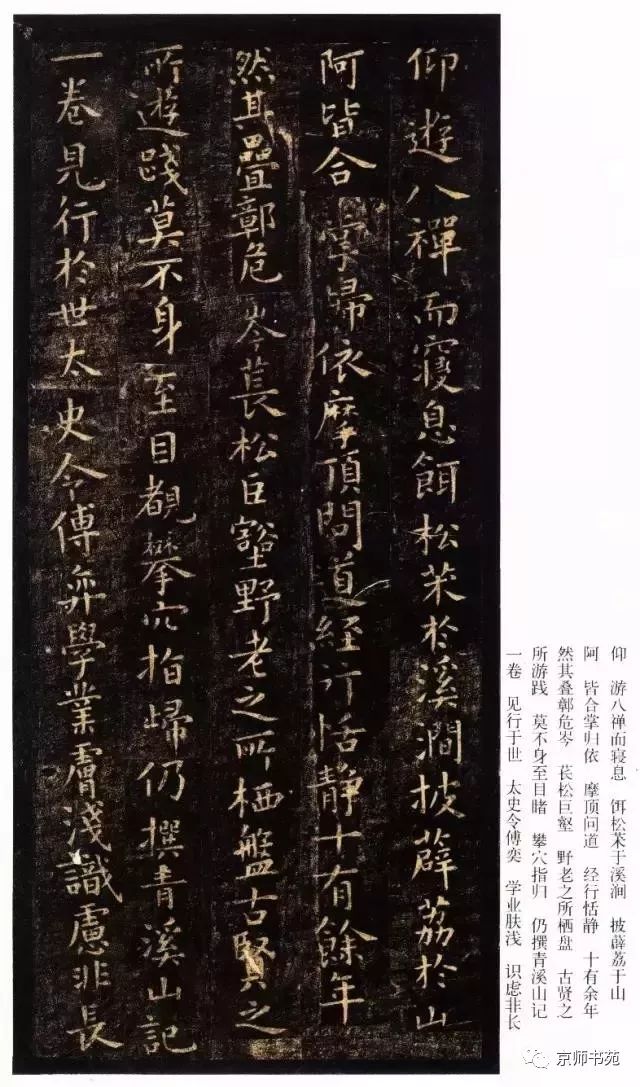 仰遊八禪而寢息餌松茱於溪澗披薜荔於山
阿皆合掌歸依摩頂問道經行恬静十有餘年
然其疊鄣危岑萇松巨豁野老之所栖盤古賢之
所遊踐莫不身至目覩攀穴指歸仍撰青溪山記
一卷見行於世太史令傅弈學業膚淺識慮非長
仰 游八禅而寝息 饵松茱于溪涧 披薜荔于山
阿 皆合掌归依 摩顶问道 经行恬静 十有余年
然其叠鄣危岑 苌松巨壑 野老之所栖盘 古贤之
所游践 莫不身至目睹 攀穴指归 仍撰青溪山记
一卷 见行于世 太史令傅奕 学业肤浅 识虑非长
京师书苑